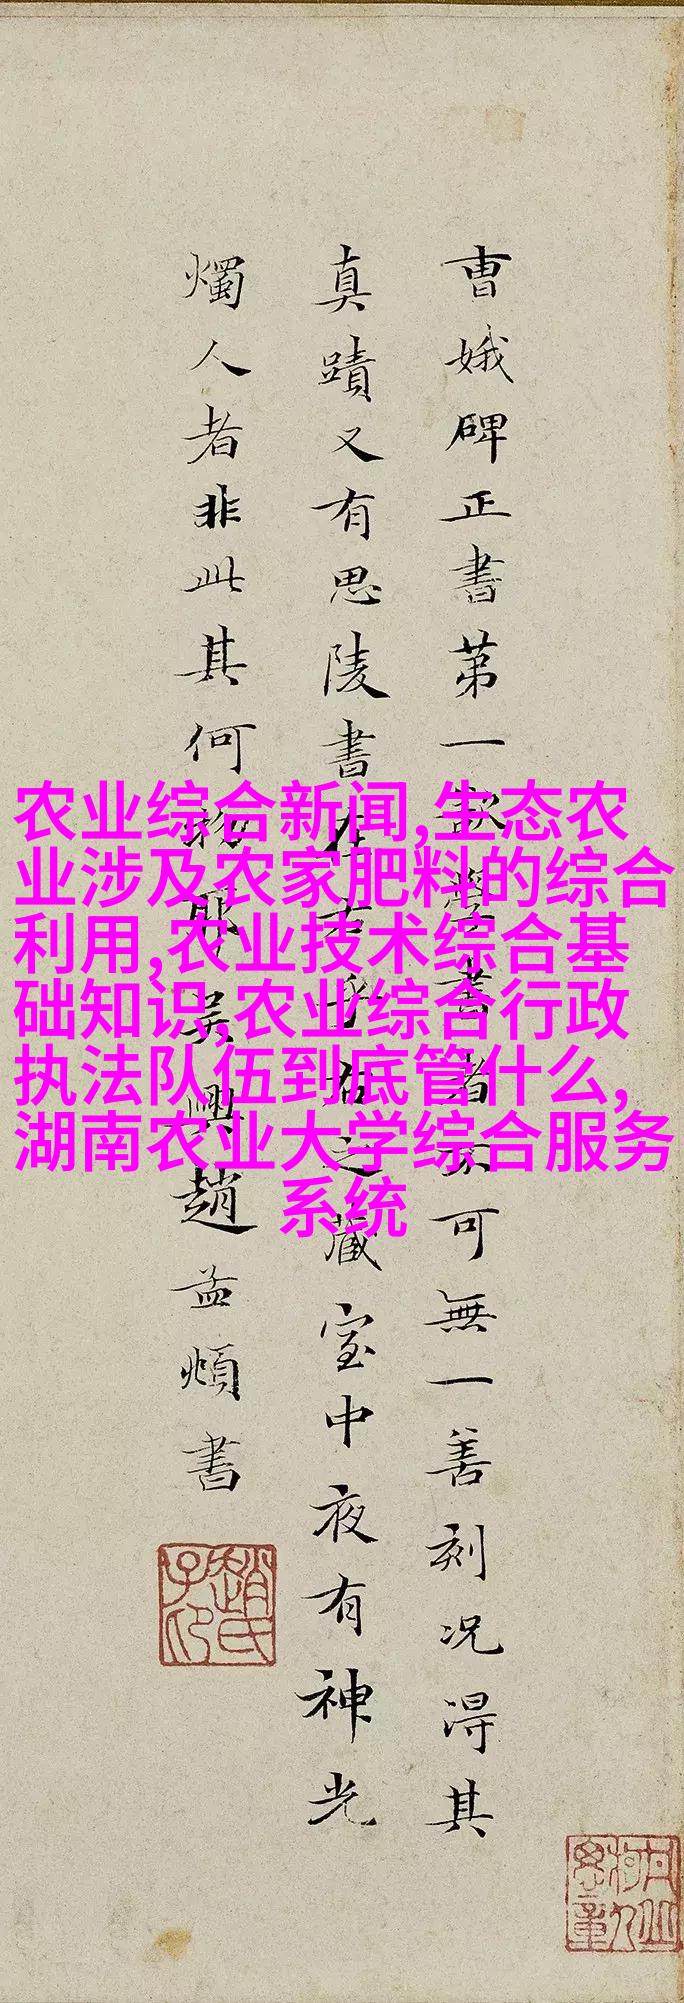 曹娥碑正書第一欲學書者不可無一善刻況得其
真蹟又有思陵書在右乎右之藏室中夜有神光
燭人者非此其何物耶吳興趙孟頫書
趙氏子昂
农业综合新闻,生态农
业涉及农家肥料的综合
利用,农业技术综合基
础知识,农业综合行政
执法队伍到底管什么,
湖南农业大学综合服务
系统